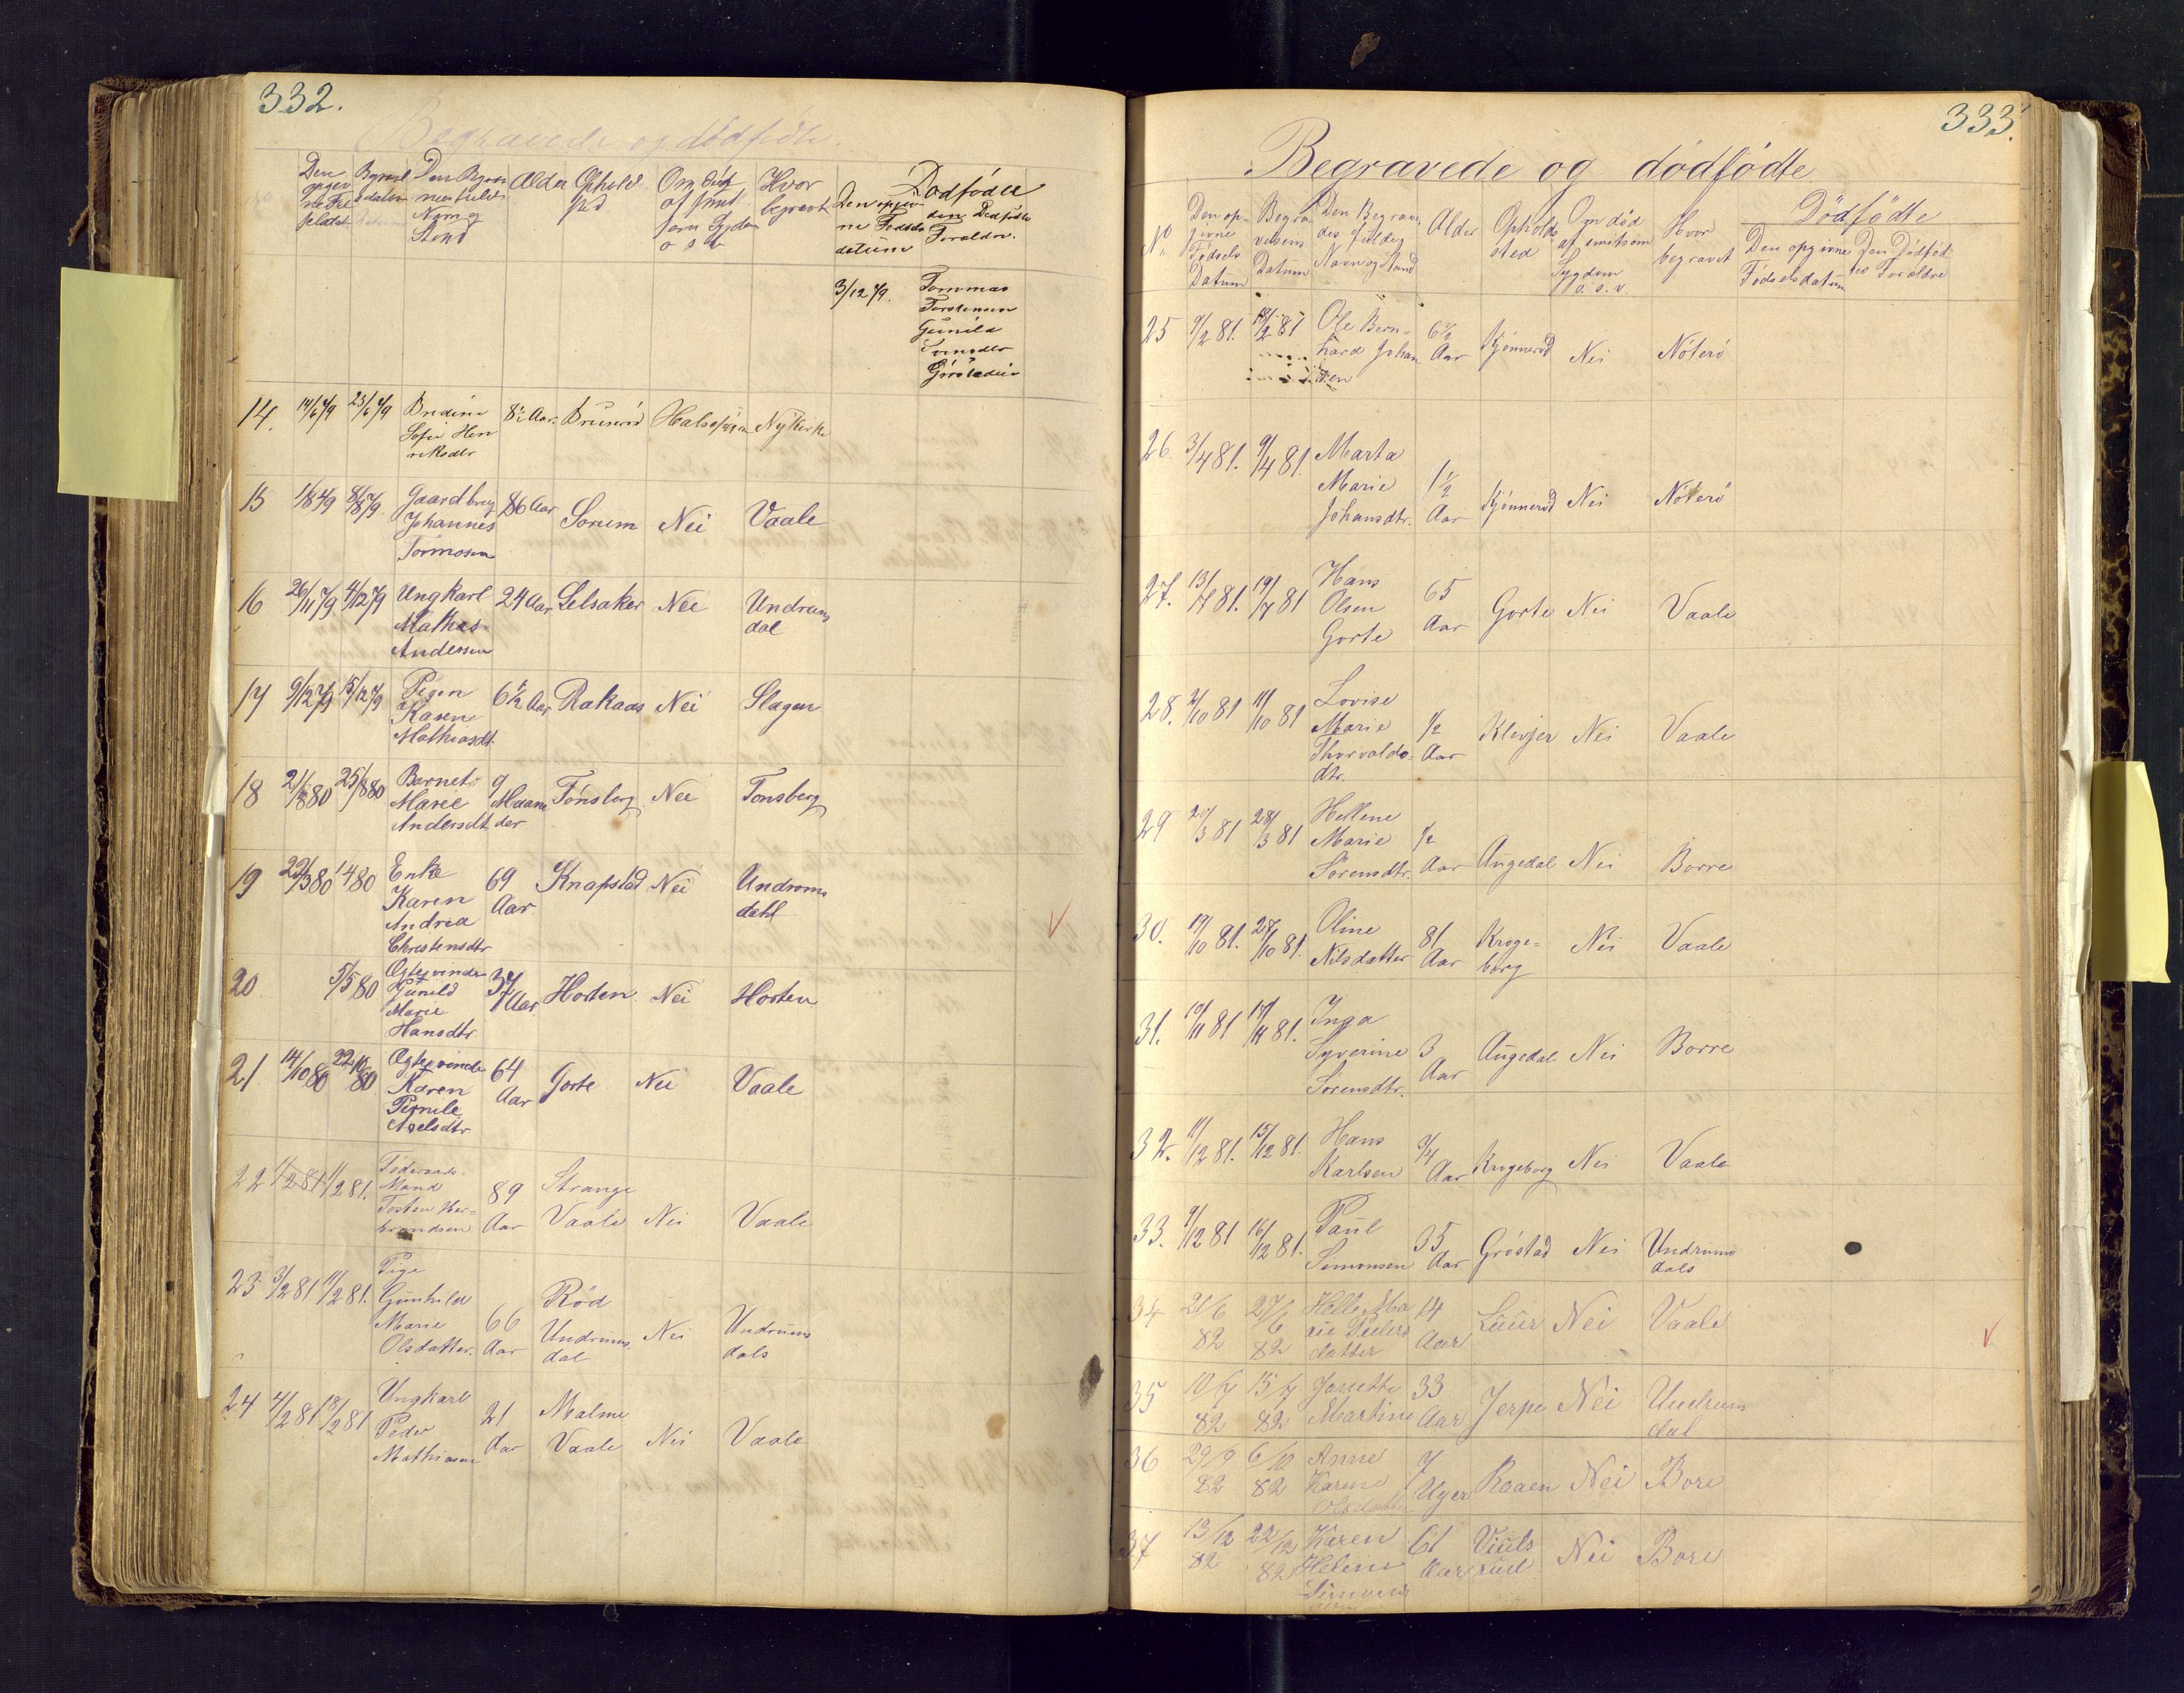 332.
Begravede og dødfødte.
Den opgiv
Alder
Ophold
sted
Hvor
begravet
Dødfødte
Den opgiv
ne Fødsels
datum
Forældre.
3/12 79.
Tommas
Torstensen
Gunild
14. 14/6 79 23/6 79 8½ Aar. Bruserød Nykirke
Sofie Hen
riksdtr
15 86 Aar Sorum Nei Vaale
Gaardbrug
Johannes
Tormosen
16 26/11 79 4/12 79 Ungkarl 24 Aar Selsaker Nei Undrums
dal
Mathias
Andersen
17 9/12 79 15/12 79 Pigen 6½ Aar Rakaas Nei Slagen
Karen
Mathiasdt.
18 21/8 80 25/8 80 Barnet 9 Tønsberg Nei Tønsberg
Marie Maane
Andersdt der
19 22/3 80 1/4 80 Enke 69 Knapstad Nei Undroms
Karen Aar dahl
Andrea
Christensdtr
20 5/5 80 37 Horten Nei Horten
Gunild Aar
Marie
Hansdtr
21 14/10 80 22/10 80 64 Gorte Nei Vaale
Karen Aar
Pernile
Axelsdtr
22 1/2 81 11/2 81.
Mand 89 Strange
Tosten Her-
brandsen Aar Vaale Nei Vaale
23 3/2 81 11/2 81. Pige
Gunhild Rød
Marie 66 Undrums Nei Undrums
Olsdatter. Aar dal dals
24 4/2 81 18/2 81 Ungkarl 21 Malme
Peder Aar Vaale Nei Vaale
Mathiasen
333.
Begravede og dødfødte
No Den op-
givne
Fødsels
Datum
Begra
velsens
Datum
Den Begrave
des fulde
Navn og Stand
Alder
Opholds
sted
Om død
af smitsom
Sygdom
o. s. v.
Hvor
begravet
Dødfødte
Den opgivne
Fødselsdatum
Den Dødfød
tes Forældre
25 9/2 81. 18/2 81 Ole Bern- 6½ Kjønnerød Nei Nøterø
hard Johan Aar
sen
26. 3/4 81. 9/4 81. Marta
Marie 1½
Johansdtr. Aar Kjønnerød Nei Nøterø
27. 13/7 81. 19/7 81 Hans 65
Olsen Aar Gorte Nei Vaale
Gorte
28. 2/10 81 11/10 81 Lovise
Marie ½ Klevjer Nei Vaale
Thorvalds- Aar
dtr.
29 28/3 81 Hellene
Marie ½
Sørensdtr. Aar Augedal Nei Borre
30. 19/10 81. 27/10 81. Oline 81 Kroge- Nei Vaale
Nilsdatter Aar borg
31. 10/11 81 17/11 81. Inga
Syverine 3 Augedal Nei Borre
Sørensdtr. Aar
32. 11/12 81. 15/12 81. Hans 3/4
Karlsen Aar Krogeborg Nei Vaale
33. 9/12 81 16/12 81. Paul 35 Grøstad Nei Undrums
Simonsen Aar dals
34 21/6 27/6 Helle Ma 14 Luur Nei Vaale
82 82 rie Peders Aar
datter
35 10/7 15/7 Janette 33 Jerpe Nei Undrum
82 82 Martine Aar dal
36 29/9 6/10 Anne 7
82 82 Karine Uger Raaen Nei Bore
Olsdatter
37 13/12 22/12 Karen 61
82 82 Helene Aar Nei Bore